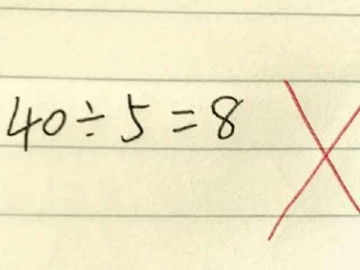 40÷5=8